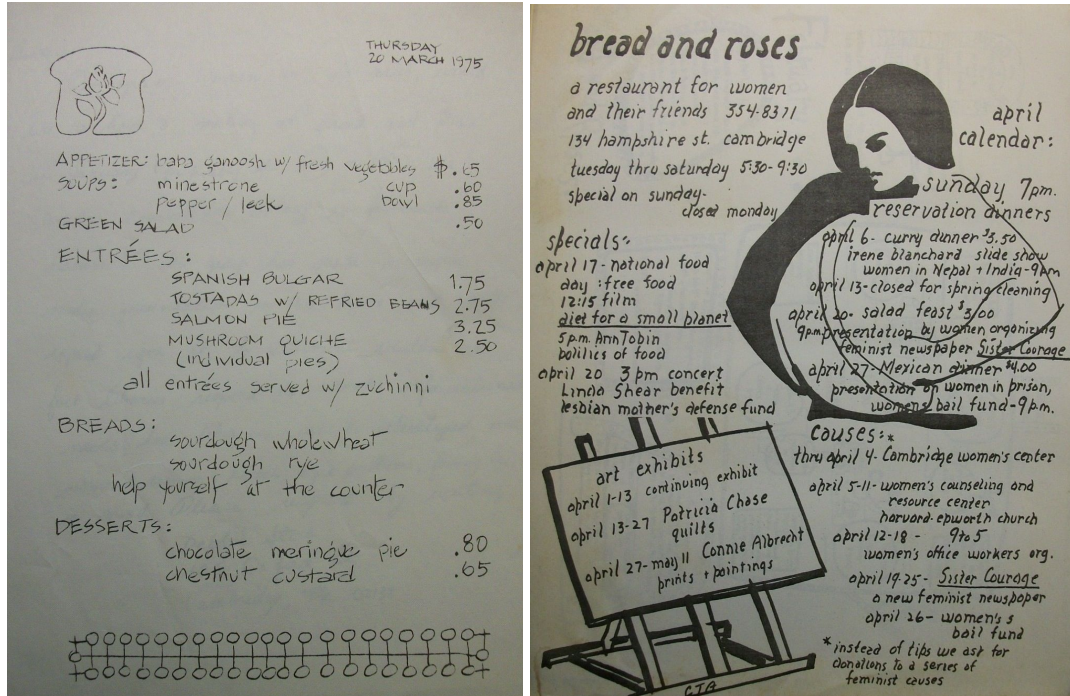 THURSDAY
20 MARCH 1975
APPETIZER: baba ganoosh w/ fresh vegetables $.65
SOUPS: minestrone cup .60
pepper/leek bowl .85
GREEN SALAD .50
ENTRÉES:
SPANISH BULGAR 1.75
TOSTADAS w/ REFRIED BEANS 2.75
SALMON PIE 3.25
MUSHROOM QUICHE 2.50
(individual pies)
all entrées served w/ zuchinni
BREADS:
sourdough wholewheat
sourdough rye
help yourself at the counter
DESSERTS:
chocolate meringue pie .80
chestnut custard .65
bread and roses
a restaurant for women
and their friends 354-8371
134 hampshire st. cambridge
tuesday thru saturday 5:30-9:30
special on sunday-
closed monday
specials:
april 17- national food
day : free food
12:15 film
diet for a small planet
5 p.m. Ann Tobin
politics of food
april 20 3 pm concert
Linda Shear benefit
lesbian mother's defense fund
april
calendar:
sunday 7pm.
reservation dinners
april 6- curry dinner $3.50
irene blanchard slide show
women in Nepal + India-9pm
april 13-closed for spring cleaning
april 20- salad feast $3.00
9p.m. presentation by women organizing
feminist newspaper Sister Courage
april 27- Mexican dinner $4.00
presentation on women in prison,
womens bail fund-9p.m.
art exhibits
april 1-13 continuing exhibit
april 13-27 Patricia Chase
quilts
april 27-may 11 Connie Albrecht
prints + paintings
CJA
causes:*
thru april 4- Cambridge women's center
april 5-11- women's counseling and
resource center
harvard-epworth church
april 12-18 - 9to5
women's office workers org.
april 19-25- Sister Courage
a new feminist newspaper
april 26- women's s
bail fund
*instead of tips we ask for
donations to a series of
feminist causes